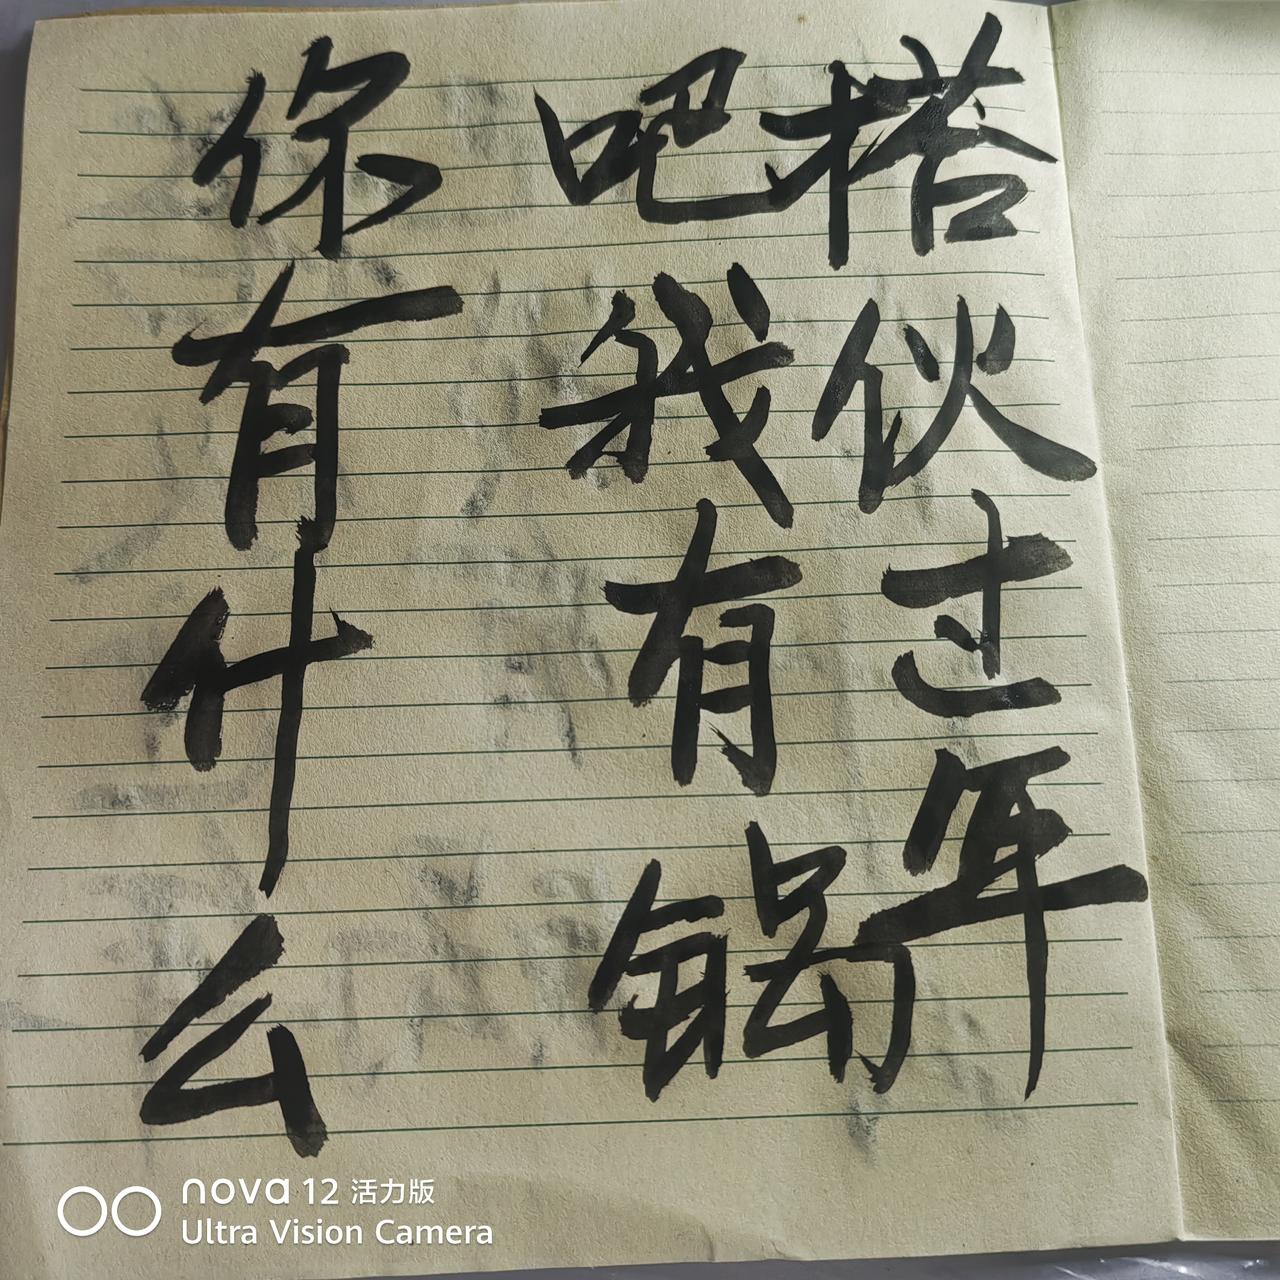 搭伙过年
吧我有锅
你有什么
nova 12 活力版
Ultra Vision Camera